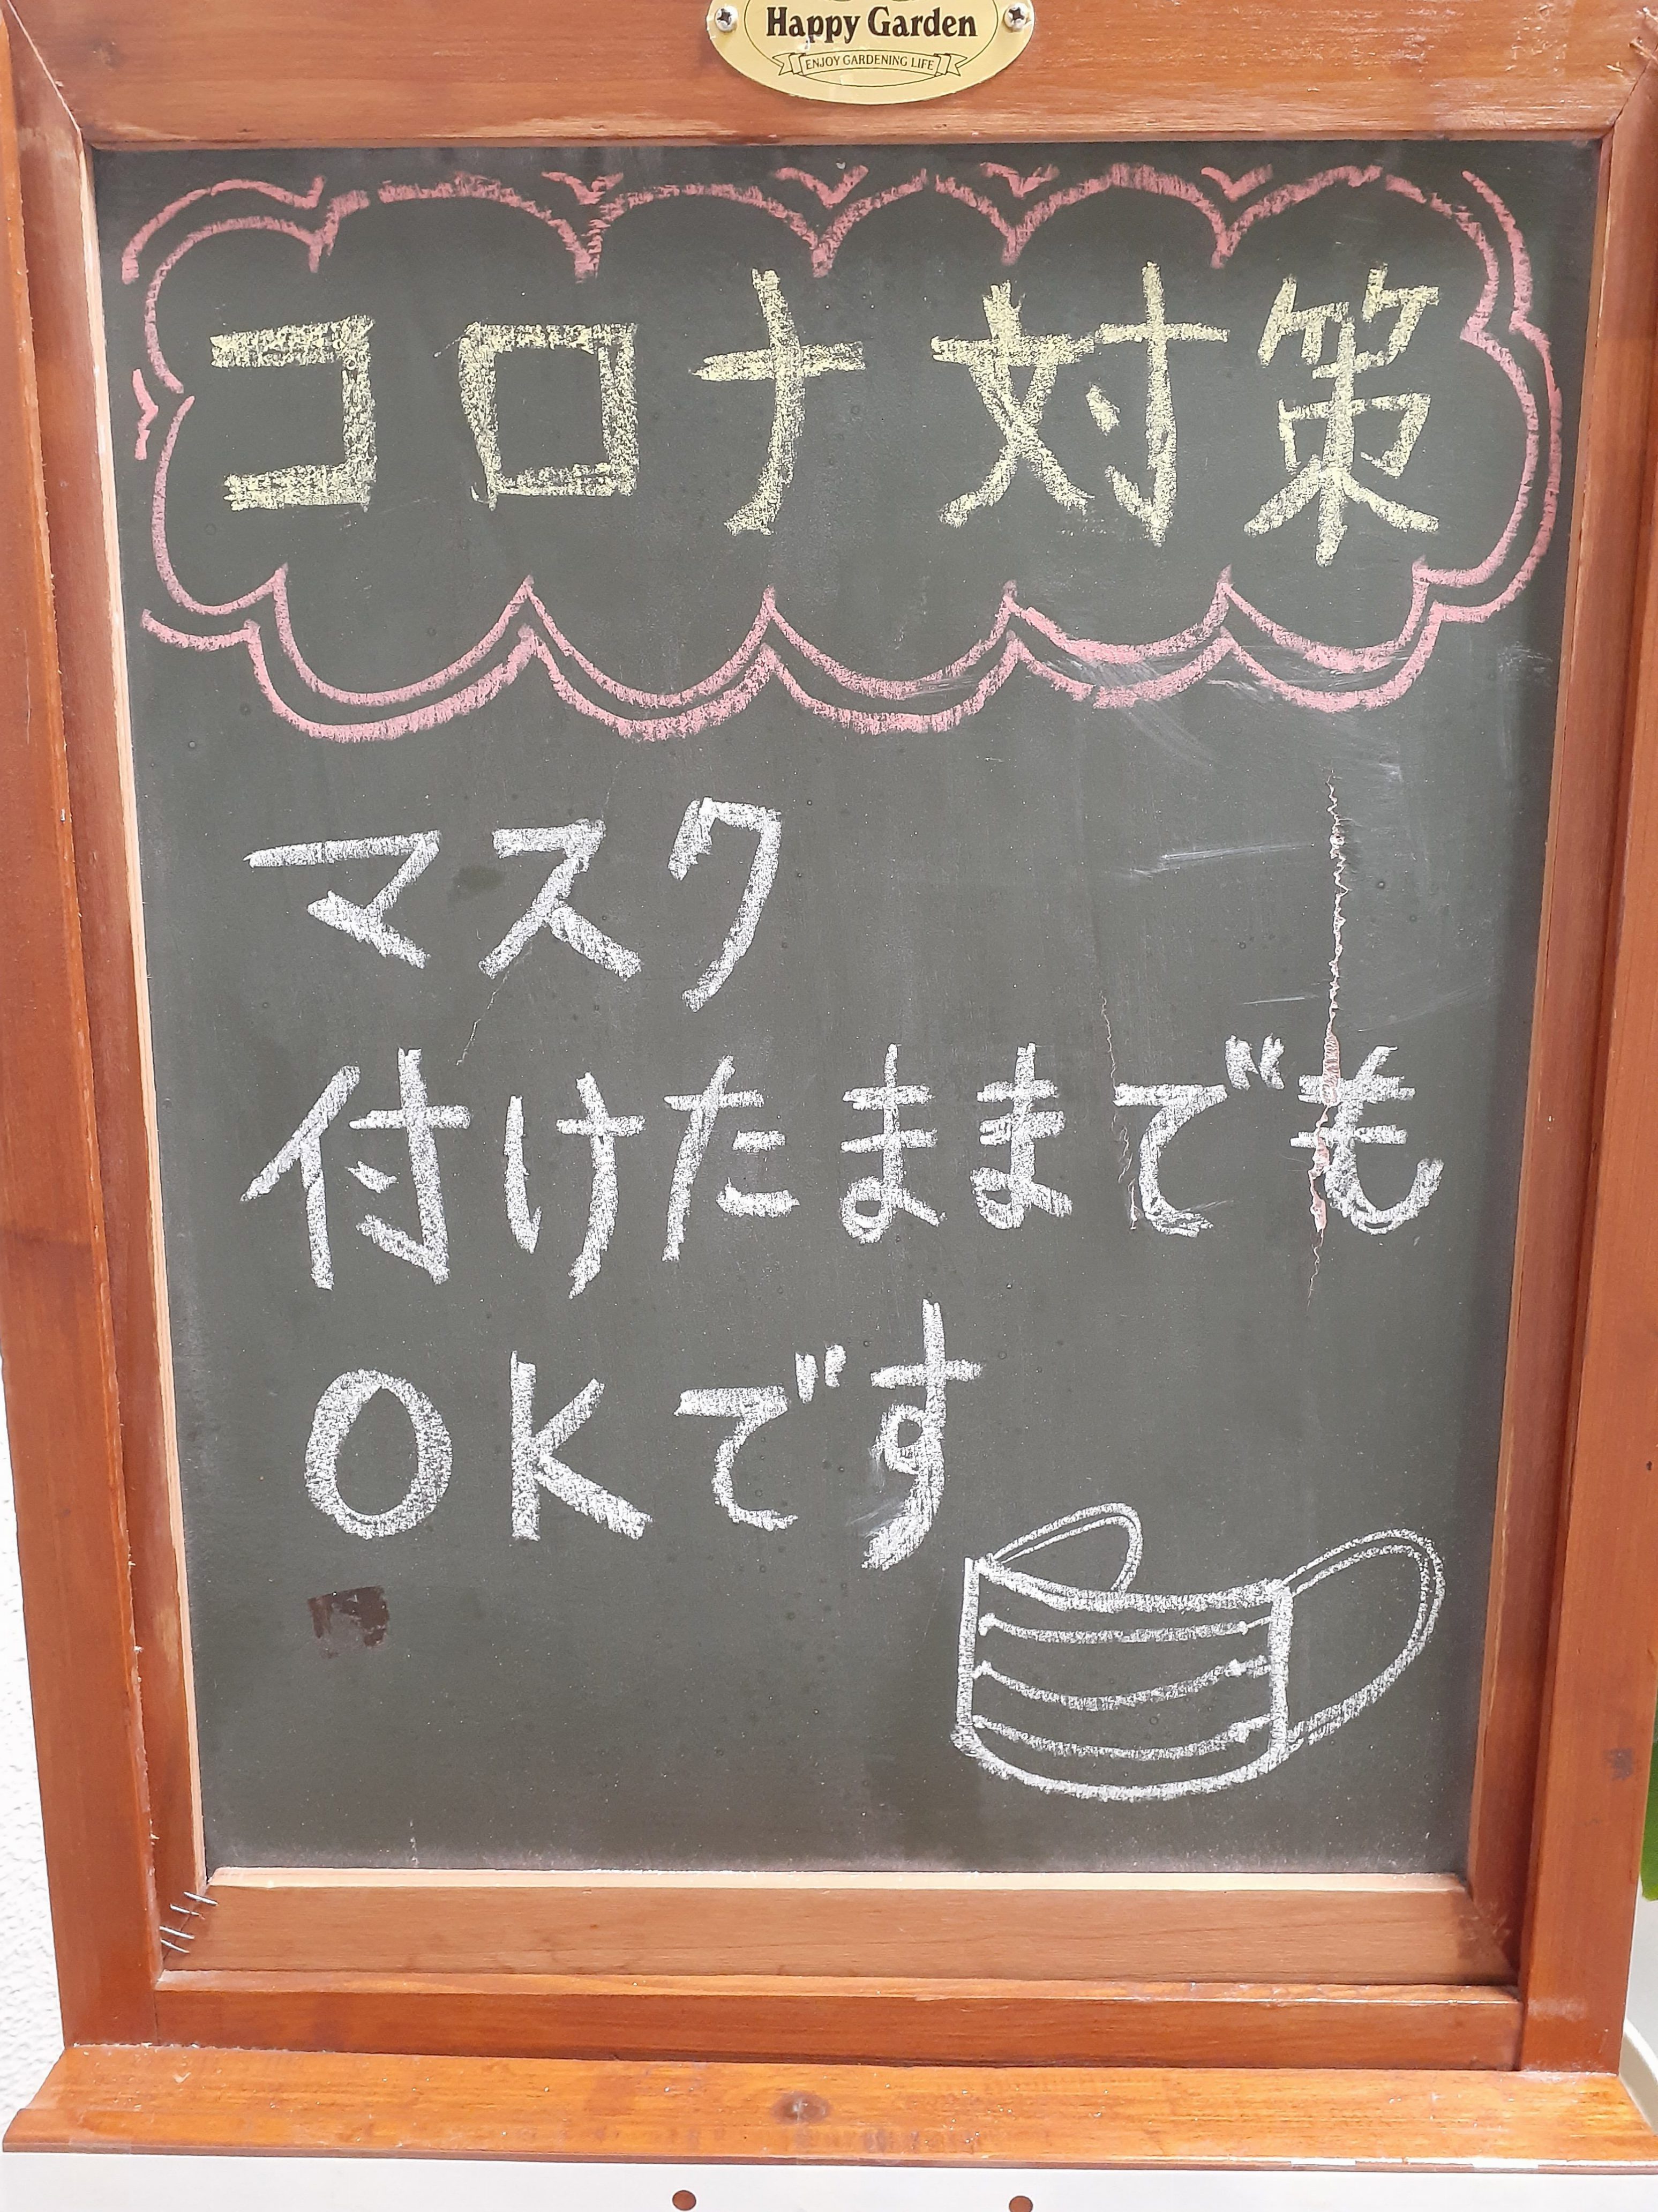 Happy Garden
ENJOY GARDENING LIFE
コロナ対策
マスク
付けたままでも
OKです